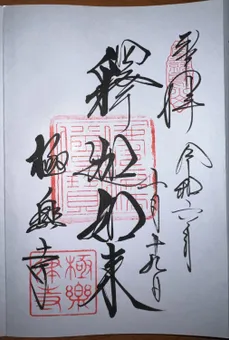 奉拝
令和六年
十月十九日
釋迦如来
極楽寺
極樂